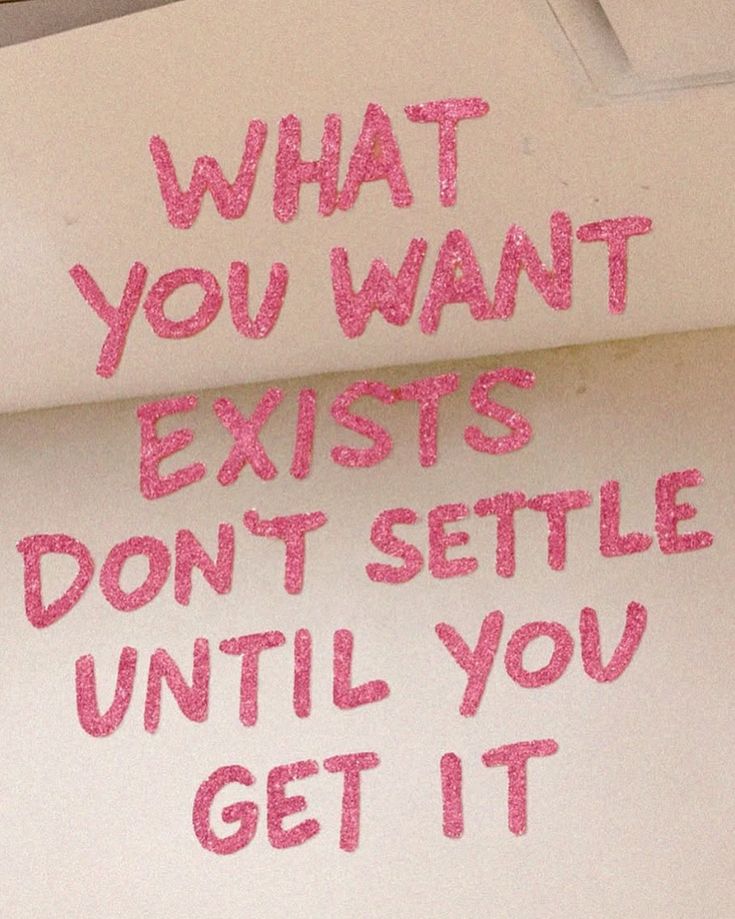 WHAT
YOU WANT
EXISTS
DON'T SETTLE
UNTIL YOU
GET IT